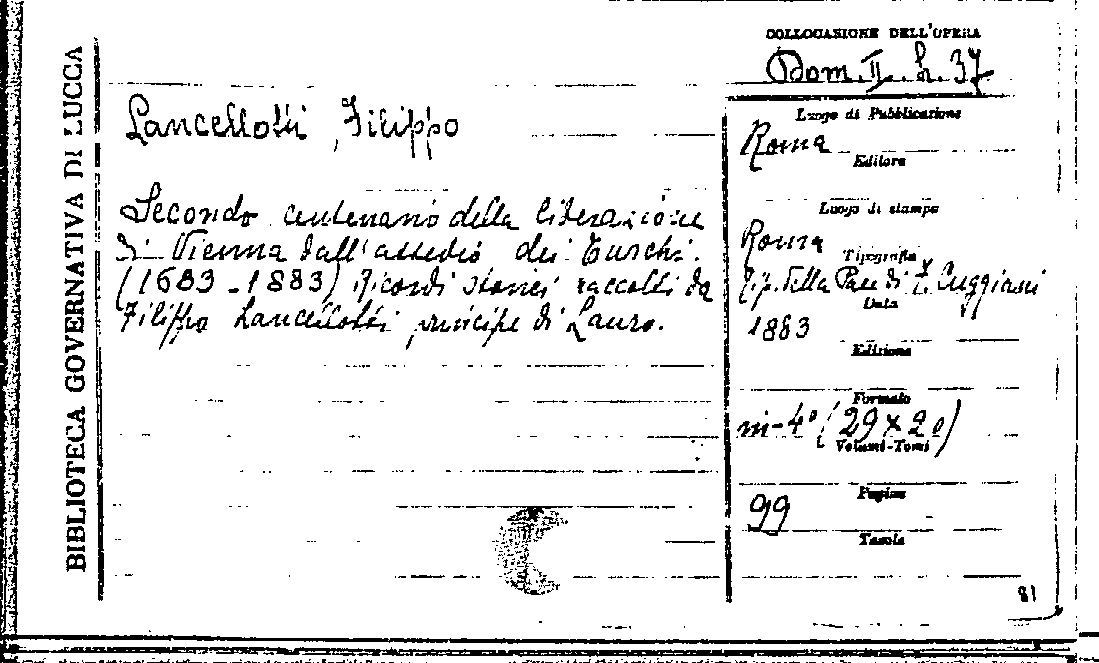 BIBLIOTECA GOVERNATIVA DI LUCCA
COLLOCASIONE DELL'OPERA
Dom. II. h. 37
Lancellotti, Filippo
Secondo centenario della liberazione
di Vienna dall'assedio dei Turchi.
(1683-1883) Ricordi storici raccolti da
Filippo Lancellotti principe di Lauro.
Luogo di Pubblicazione
Roma
Editore
Luogo di stampa
Roma
Tipografia
Tip. della Pace di F. Cuggiani
Data
1883
Edizione
Formato
in-4° (29 x 20)
Volumi-Tomi
Pagine
99
Tavole
81